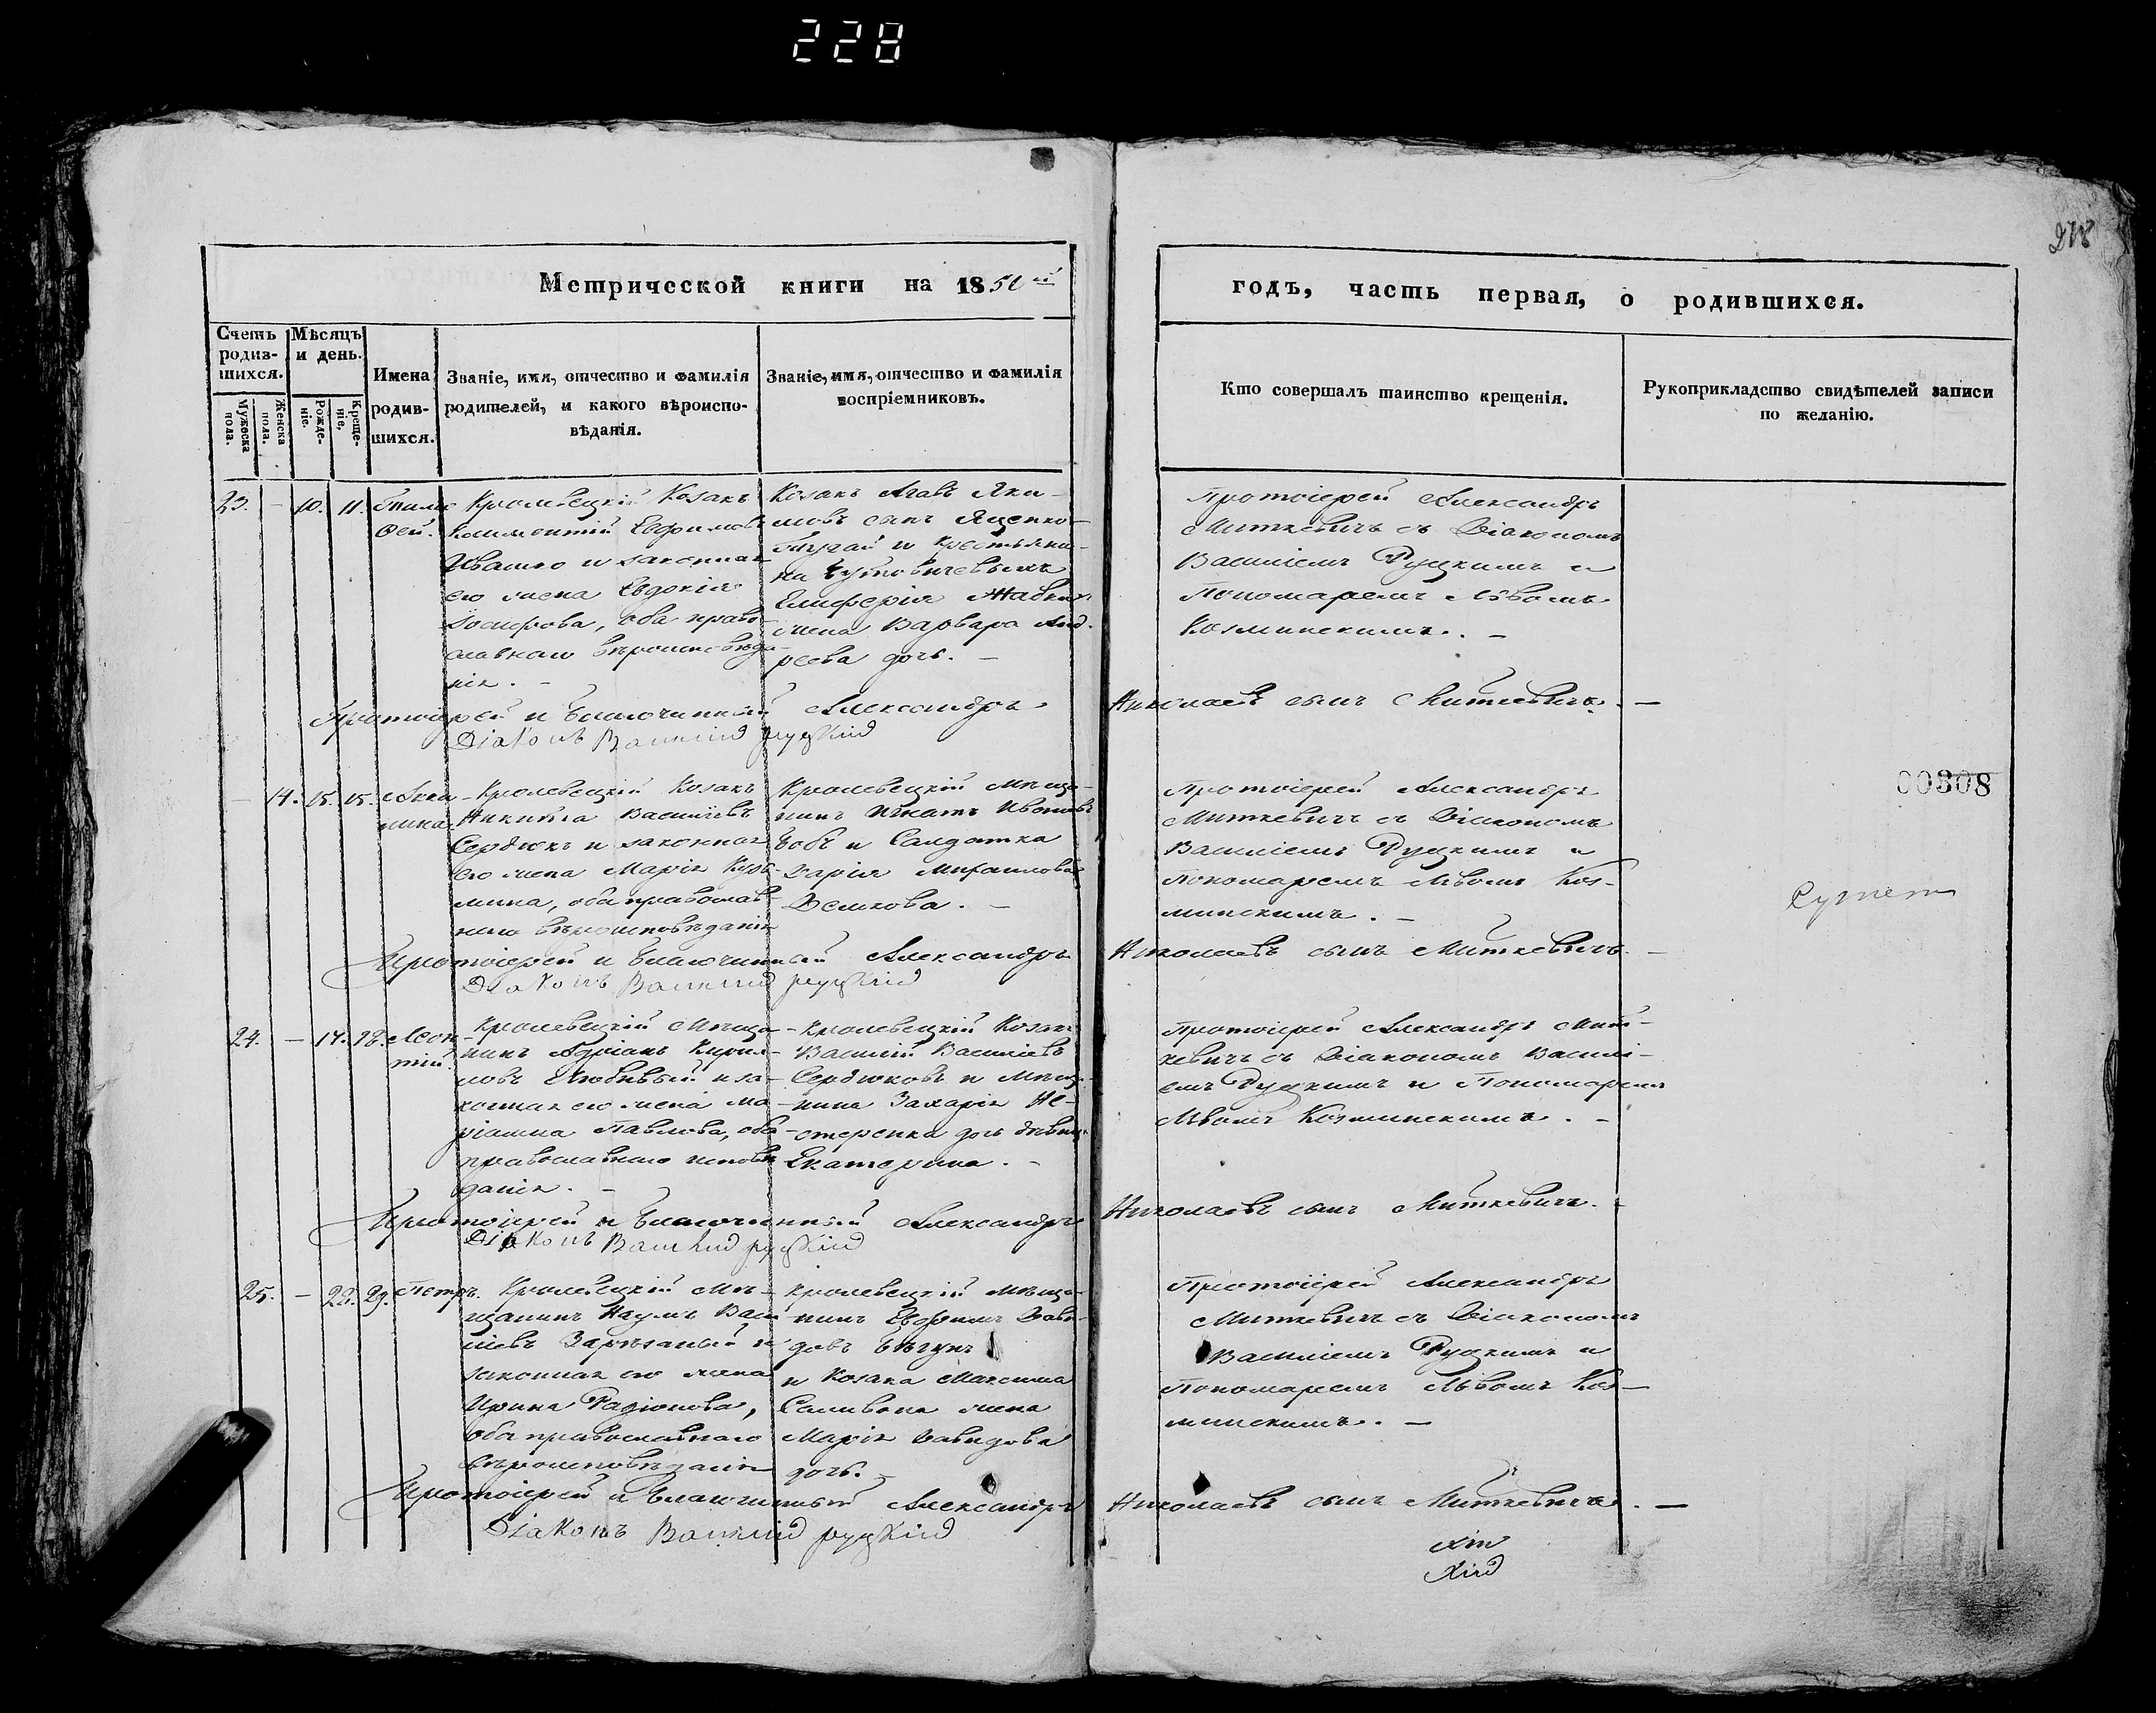 228
218
Метрической книги на 1850й
годъ, часть первая, о родившихся.
Счетъ родив-шихся.
Мѣсяцъ и день.
Мужеска пола.
Женска пола.
Рожде-ніе.
Креще-ніе.
Имена родив-шихся.
Званіе, имя, отчество и фамилія
родителей, и какого вѣроиспо-
вѣданія.
Званіе, имя, отчество и фамилія
воспріемниковъ.
Кто совершалъ таинство крещенія.
Рукоприкладство свидѣтелей записи
по желанію.
23. - 10. 11. Тимо
ѳей.
Кролевецкій Козакъ
Климентій Евфимовъ
Ивашко и законная
его жена Евдокія
Іосифова, оба право-
славнаго вѣроисповѣда-
нія. -
Козакъ
мовъ сынъ Яценко-
и крестьяни-
на
Елиферія
жена Варвара Анд-
реева дочь. -
Протоіерей Александръ
Миткевичъ съ Діакономъ
Василіемъ Руцкимъ и
Пономаремъ Львомъ
Козминскимъ. -
Протоіерей и Благочинный Александръ Николаевъ сынъ Миткевичъ. -
Діаконъ Василій руцкій
00308
- 14. 15. 15. Аки-
лина
Кролевецкій Козакъ
Никита Василіевъ
Сердюкъ и законная
его жена Марія Кузь-
мина, оба православ-
наго вѣроисповѣданія
Кролевецкій Мѣща-
нинъ Игнатъ
и Салдатка
Дарія Михаилова
Демкова. -
Протоіерей Александръ
Миткевичъ съ Діакономъ
Василіемъ Руцкимъ и
Пономаремъ Львомъ Коз-
минскимъ. -
Протоіерей и Благочинный Александръ Николаевъ сынъ Миткевичъ. -
Діаконъ Василій руцкій
24. - 17. 28. Леон-
тій.
Кролевецкій Мѣща-
нинъ Адріанъ Кирил-
ловъ Любивый и за-
конная его жена Ма-
ріанна Павлова, оба
православнаго исповѣ-
данія. -
Кролевецкій Козакъ
Василій Василіевъ
Сердюковъ и Мѣща-
нина Захарія Не-
стеренка дочь дѣвица
Екатерина. -
Протоіерей Александръ Мит-
кевичъ съ Діакономъ Василі-
емъ Руцкимъ и Пономаремъ
Львомъ Козминскимъ. -
Протоіерей и Благочинный Александръ Николаевъ сынъ Миткевичъ. -
Діаконъ Василій руцкій
25. - 28. 29. Петръ.
Кролевецкій Мѣ-
щанинъ Наумъ Васи-
ліевъ Зарѣзаный и
законная его жена
Ирина Радіонова,
оба православнаго
вѣроисповѣданія
Кролевецкій Мѣща-
нинъ Евфимъ Дави-
довъ Бѣгунъ
и Козака Максима
Саливона жена
Марія Давидова
дочь. -
Протоіерей Александръ
Миткевичъ съ Діакономъ
Василіемъ Руцкимъ и
Пономаремъ Львомъ Коз-
минскимъ. -
Протоіерей и Благочинный Александръ Николаевъ сынъ Миткевичъ. -
Діаконъ Василій руцкій